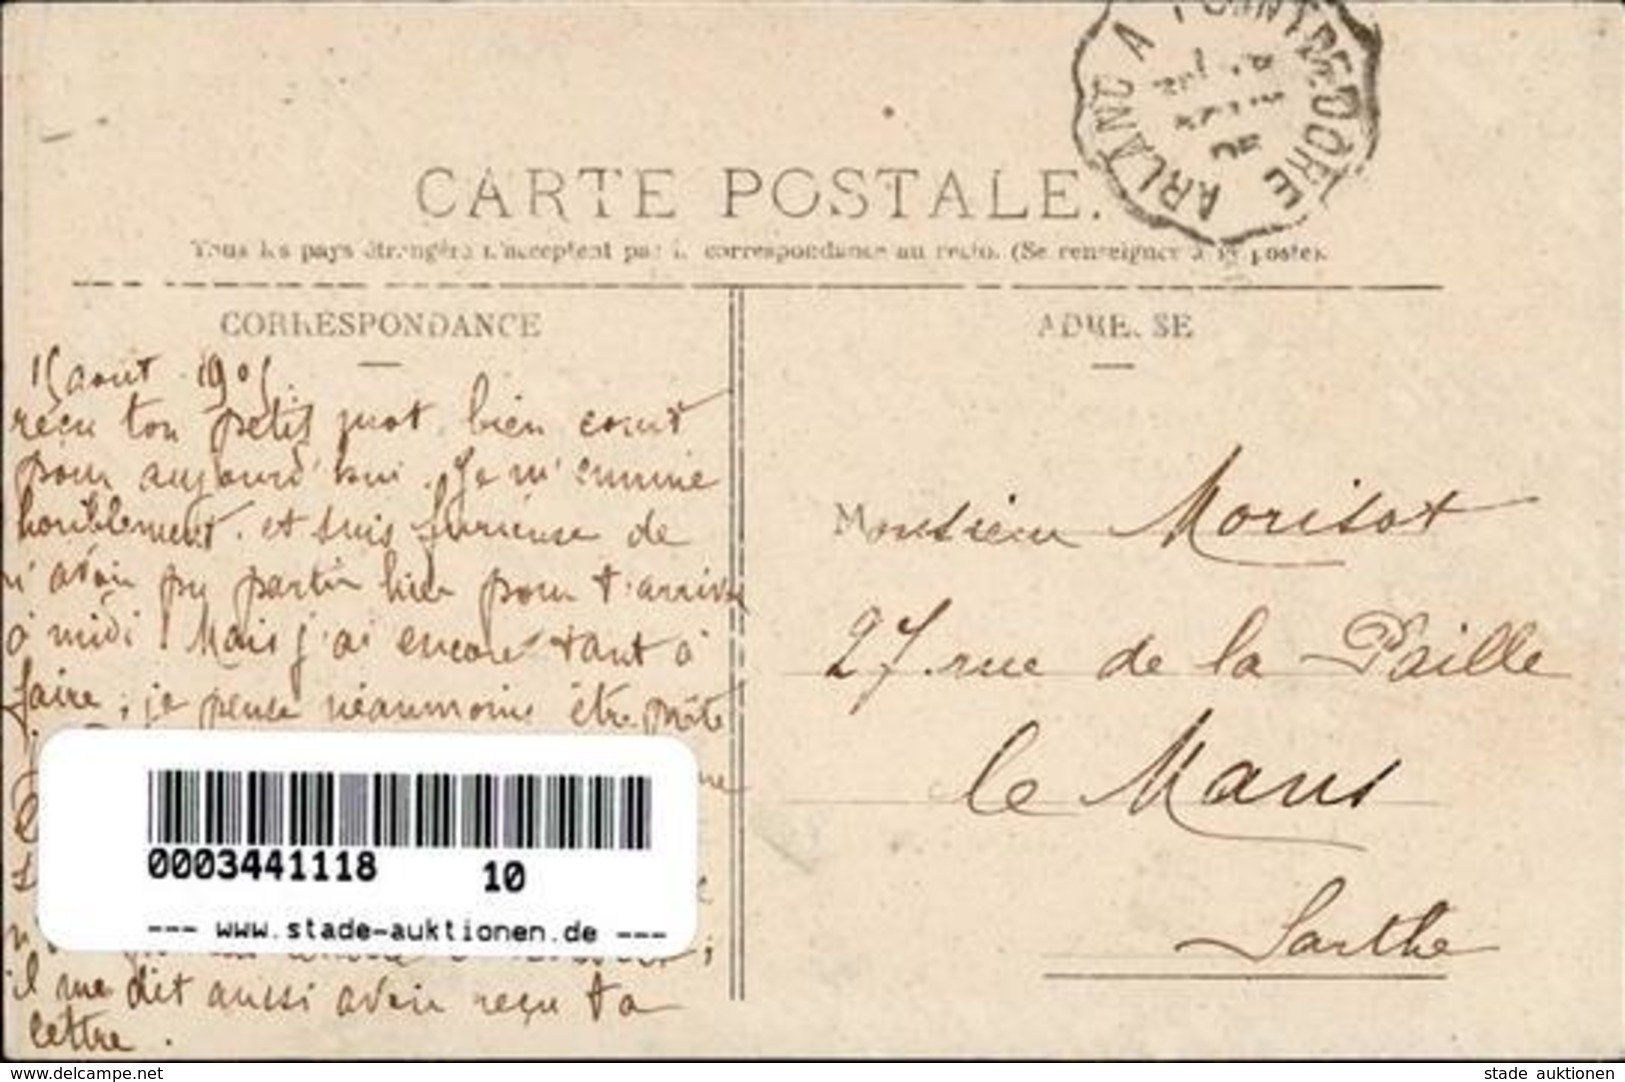 ARLANC A PONTDEDORE
CARTE POSTALE.
Tous les pays étrangers n'acceptent pas la correspondance au recto. (Se renseigner à la poste).
CORRESPONDANCE
ADRESSE
15 aout 1905
reçu ton petit mot bien court
pour aujourd'hui. Je m'ennuie
horriblement. et suis furieuse de
n'avoir pu partir hier pour t'arriver
à midi! Mais j'ai encore tant à
faire; je pense néanmoins être prête
il me dit aussi avoir reçu ta
lettre.
Monsieur Morisot
27. rue de la Paille
le Mans
Sarthe
0003441118 10
--- www.stade-auktionen.de ---
www.delcampe.net
stade auktionen